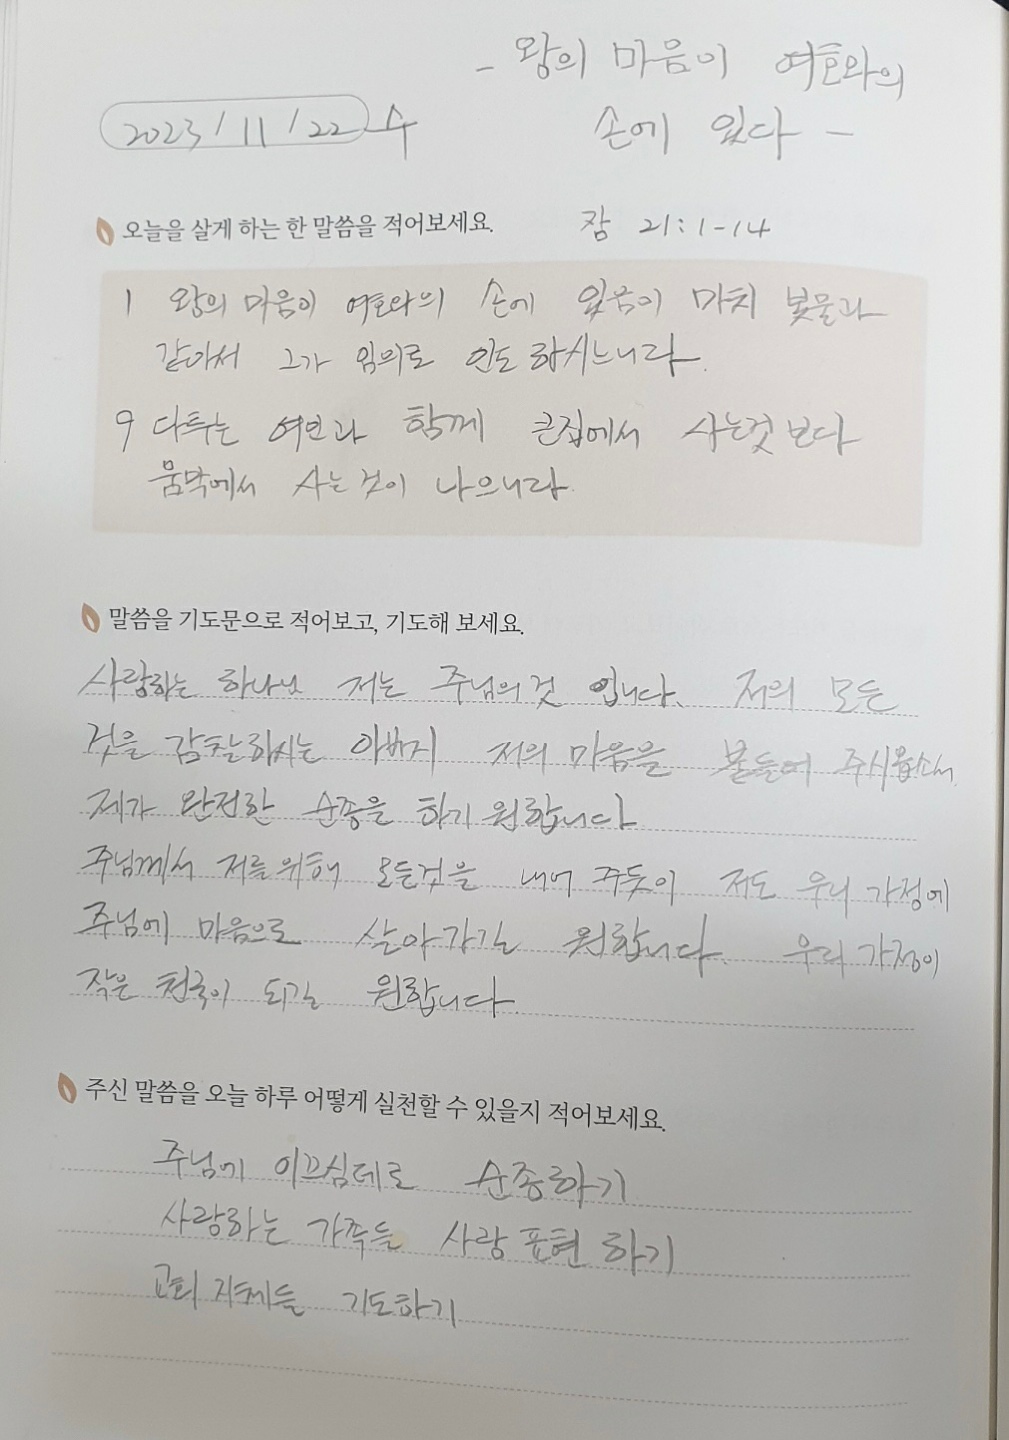 - 왕의 마음이 여호와의
손에 있다 -
2023/11/22 수
오늘을 살게 하는 한 말씀을 적어보세요.
잠 21:1-14
1 왕의 마음이 여호와의 손에 있음이 마치 봇물과
같아서 그가 임의로 인도하시느니라.
9 다투는 여인과 함께 큰집에서 사는것 보다
움막에서 사는것이 나으니라.
말씀을 기도문으로 적어보고, 기도해 보세요.
사랑하는 하나님 저는 주님의것 입니다. 저의 모든
것을 감찰하시는 아버지 저의 마음을 붙들어 주시옵소서
제가 완전한 순종을 하기 원합니다
주님께서 저를위해 모든것을 내어 주듯이 저도 우리 가정에
주님에 마음으로 살아가길 원합니다. 우리 가정이
작은 천국이 되길 원합니다.
주신 말씀을 오늘 하루 어떻게 실천할 수 있을지 적어보세요.
주님에 이끄심데로 순종하기
사랑하는 가족들 사랑 표현 하기
교회 지체들 기도하기